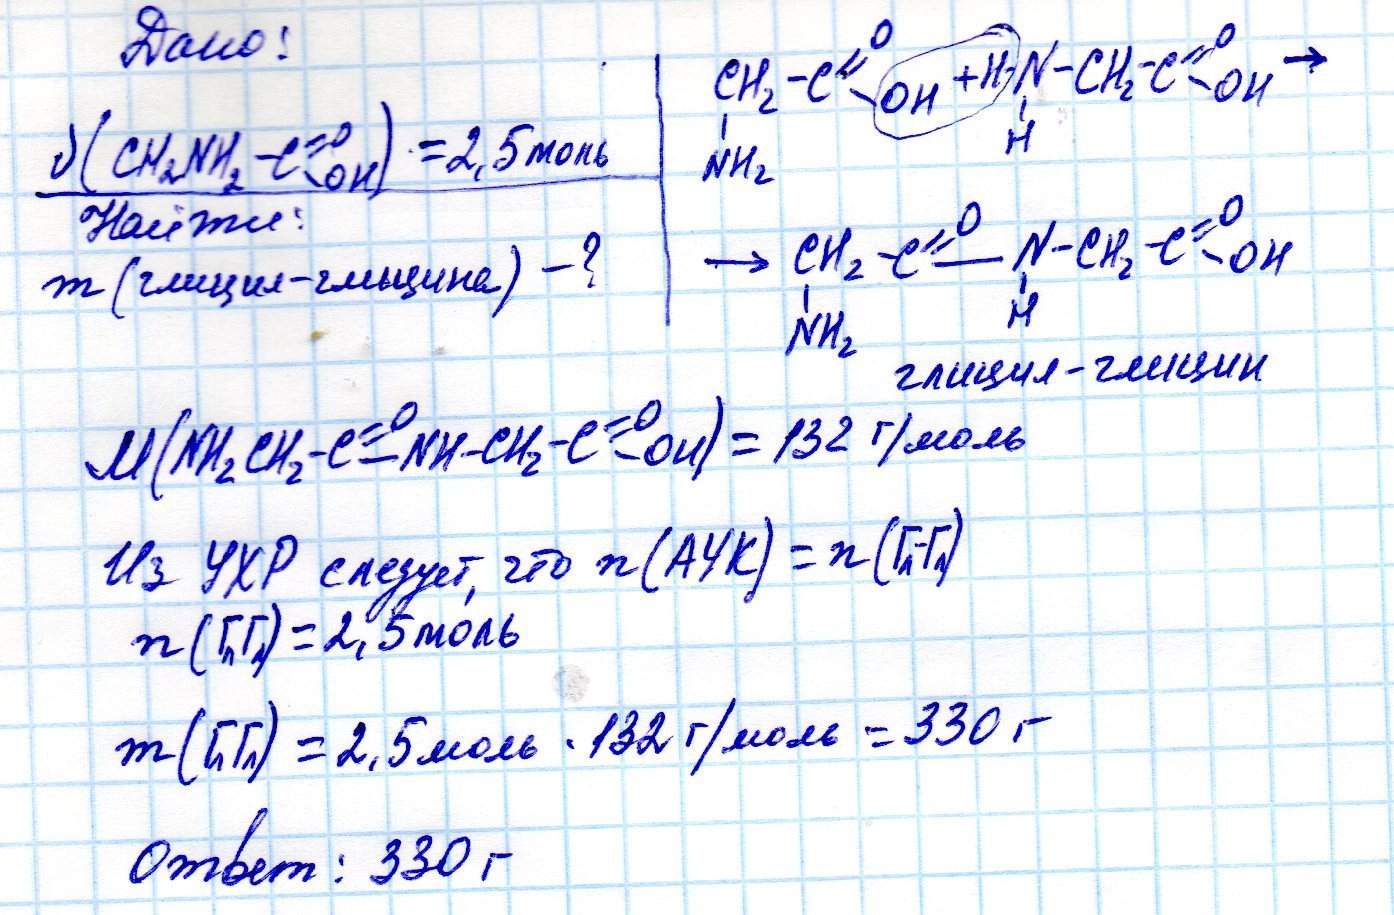 Дано:
ν(CH₂NH₂-C=O OH) = 2,5 моль
Найти:
m(глицил-глицина) -?
CH₂-C=O OH + H-N-CH₂-C=O OH →
NH₂ H
→ CH₂-C=O — N-CH₂-C=O OH
NH₂ H
глицил-глицин
M(NH₂CH₂-C=O -NH-CH₂-C=O OH) = 132 г/моль
Из УХР следует, что n(АУК) = n(Гл-Гл)
n(ГлГл) = 2,5 моль
m(ГлГл) = 2,5 моль · 132 г/моль = 330 г
Ответ: 330 г